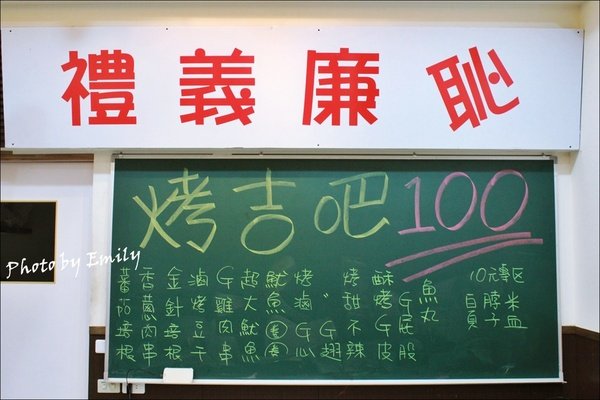 禮義廉恥
烤吉吧100
蕃茄培根
香蔥肉串
金針培根
滷烤豆干
G雞肉串
超大魷魚
魷魚
烤滷G心
〃G翅
烤甜不辣
酥烤G皮
G屁股
魚丸
10元專區
米血
Photo by Emily